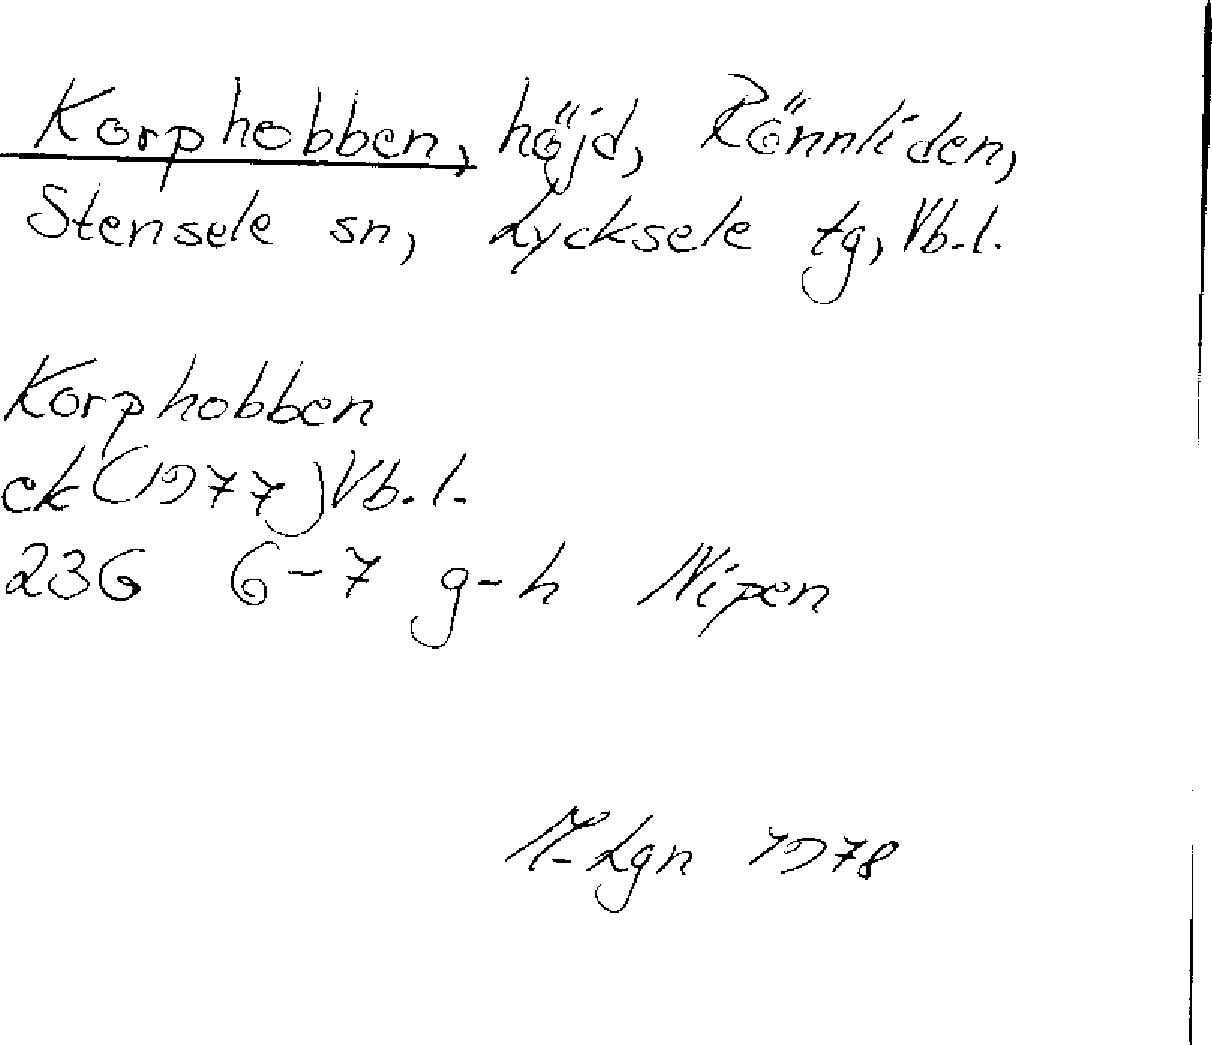 Korphobben, höjd, Rönnliden,
Stensele sn, Lycksele tg, Vb.l.
Korphobben
ek (1977) Vb.l.
23G 6-7 g-h Nipen
Lgn 1978